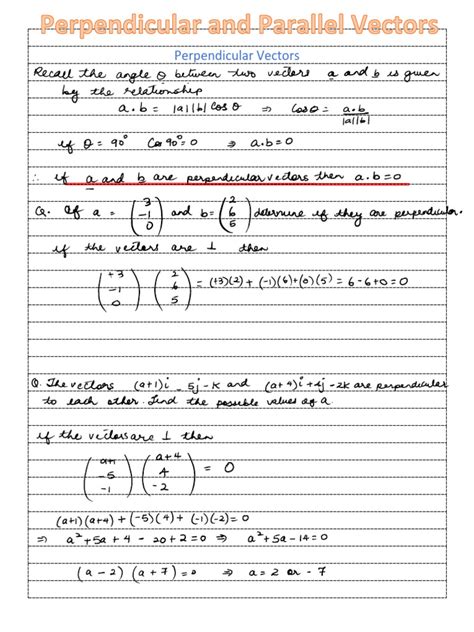 Perpendicular and Parallel Vectors
Perpendicular Vectors
Recall the angle θ between two vectors a and b is given
by the relationship
a.b = |a||b| cos θ ⇒ cos θ = a.b / |a||b|
if θ = 90° Cos 90° = 0 ⇒ a.b = 0
∴ if a and b are perpendicular vectors then a.b = 0
Q. If a = (3 -1 0) and b = (2 6 5) determine if they are perpendicular.
if the vectors are ⊥ then
(+3 -1 0) (2 6 5) = (+3)(2) + (-1)(6) + (0)(5) = 6 - 6 + 0 = 0
Q. The vectors (a+1)i - 5j - k and (a+4)i + 4j - 2k are perpendicular
to each other. Find the possible values of a.
if the vectors are ⊥ then
(a+1 -5 -1) (a+4 4 -2) = 0
(a+1)(a+4) + (-5)(4) + (-1)(-2) = 0
⇒ a² + 5a + 4 - 20 + 2 = 0 ⇒ a² + 5a - 14 = 0
(a - 2) (a + 7) = 0 ⇒ a = 2 or - 7